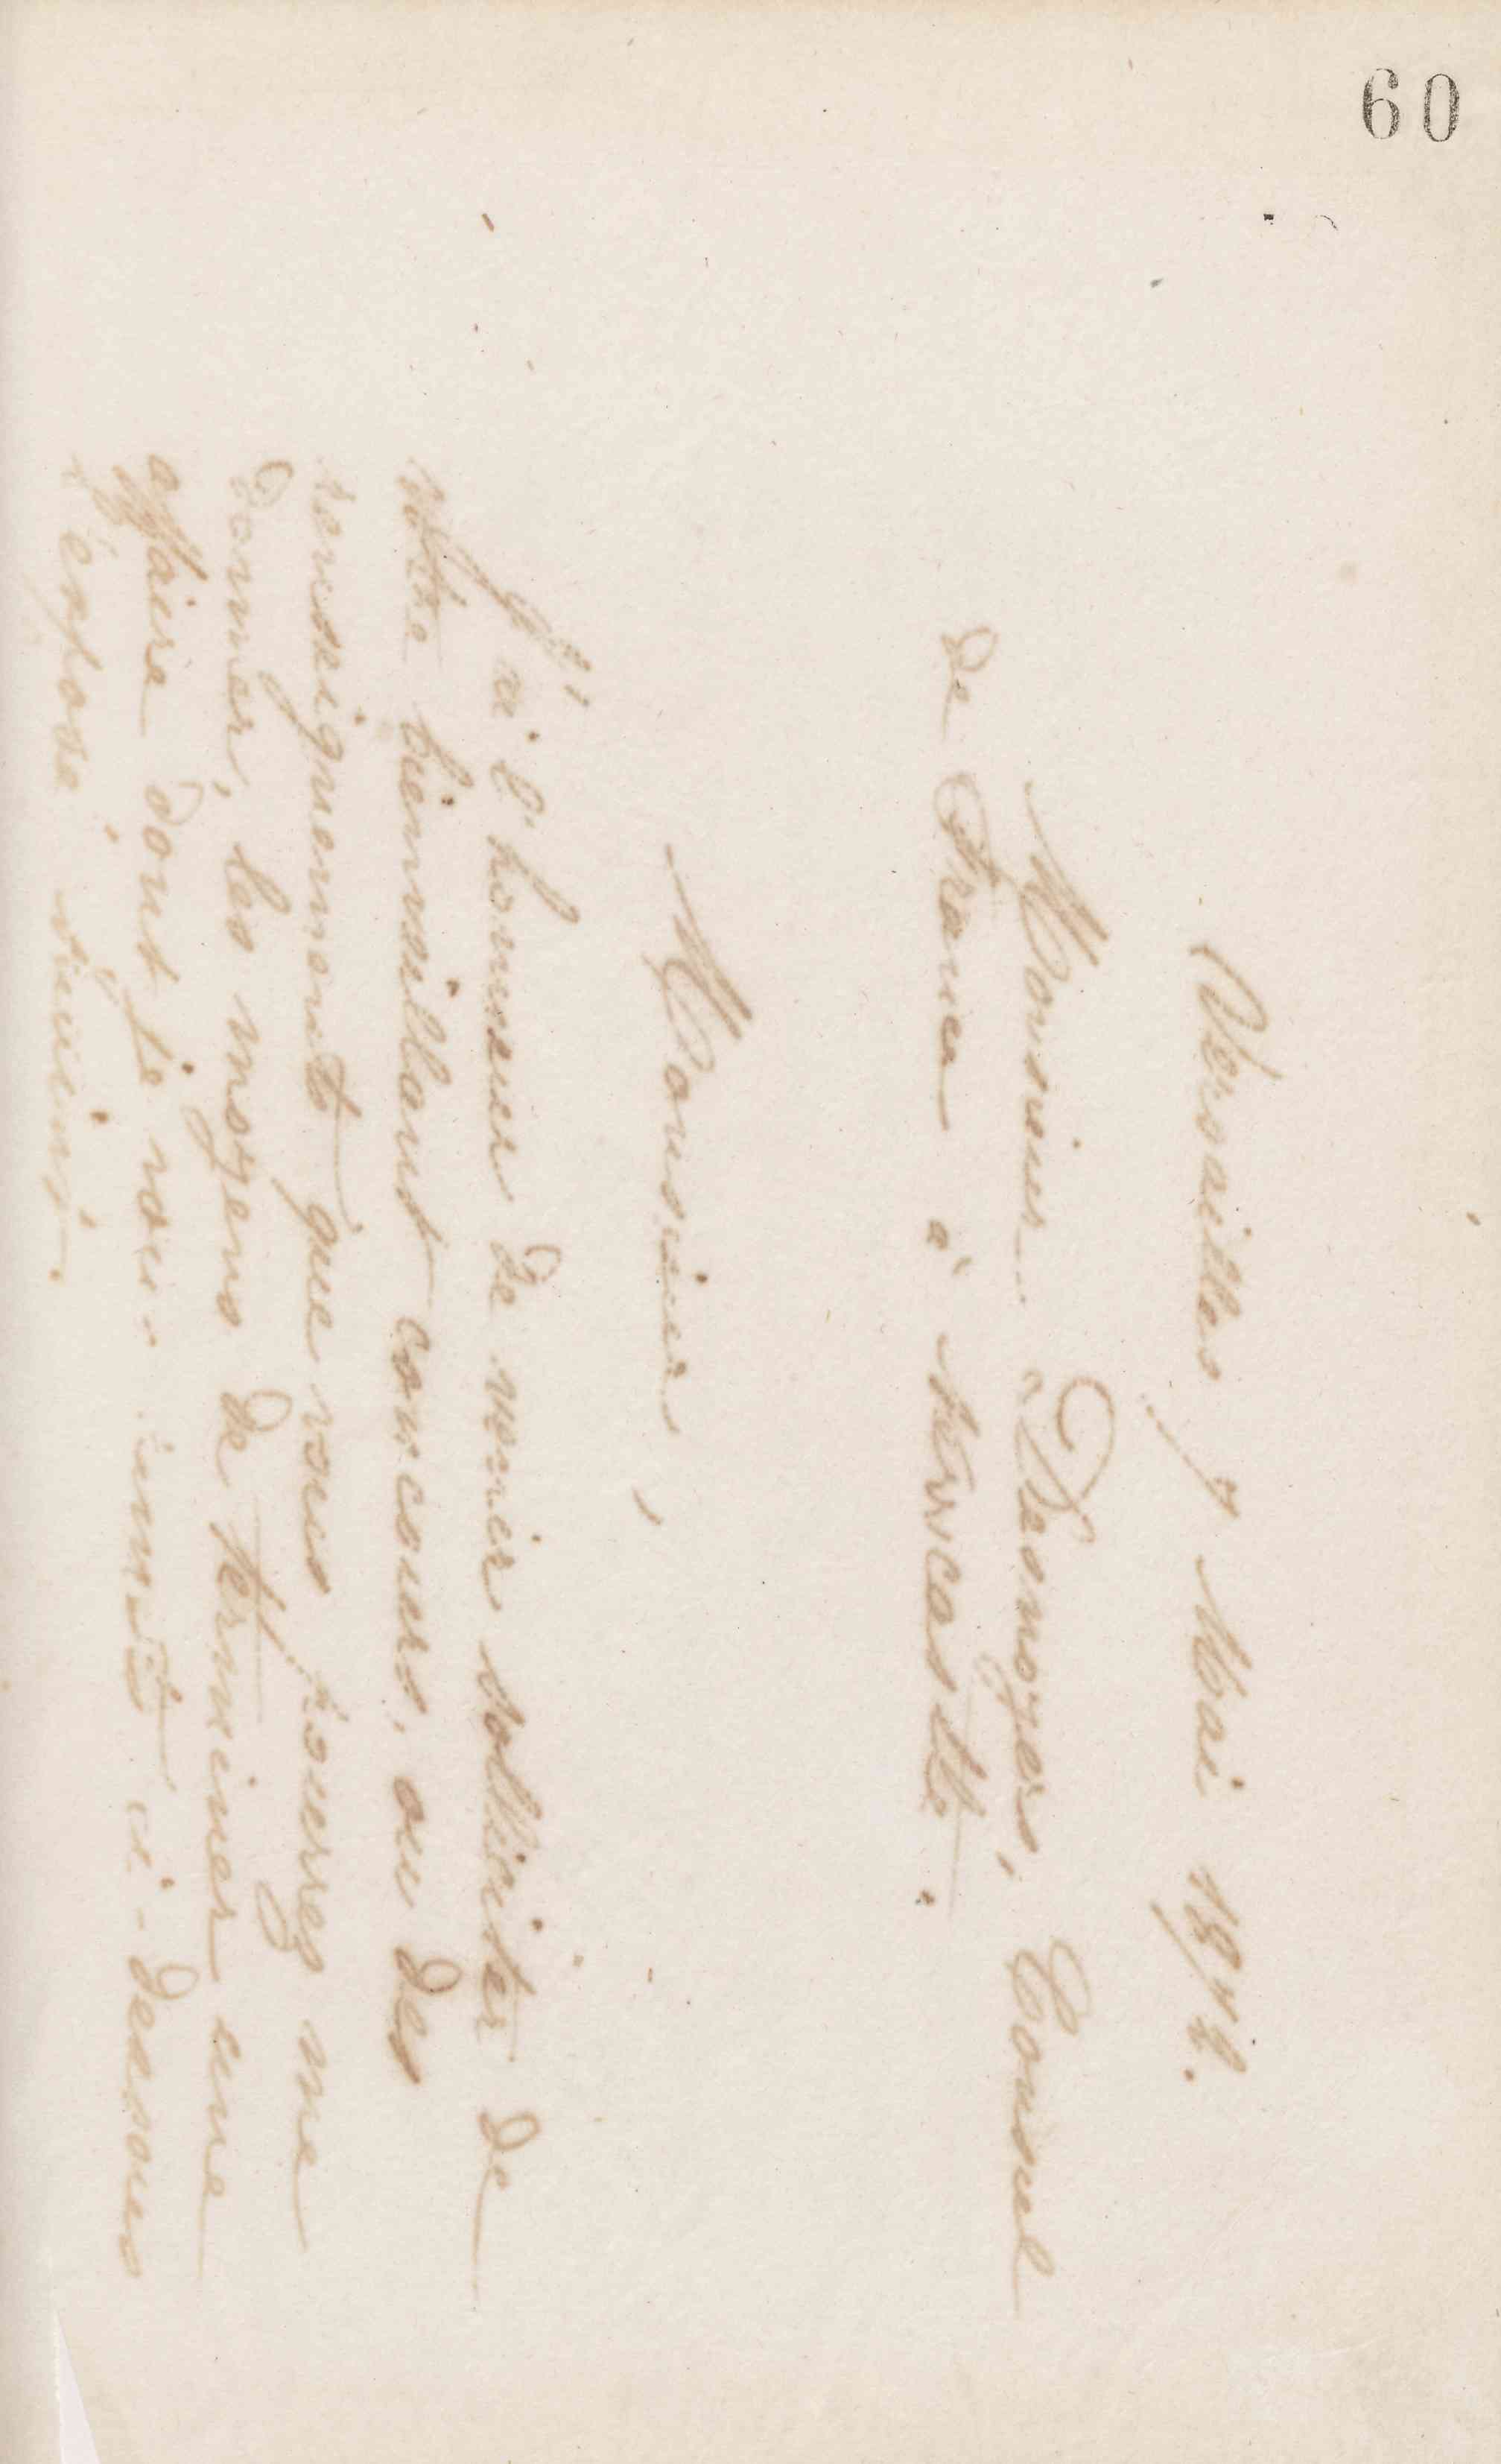 60
Versailles 7 Mai 1874.
Monsieur Desnoyers, Consul
de France à Newcastle.
Monsieur,
J'ai l'honneur de venir solliciter de
votre bienveillant concours, ou des
renseignements que vous pourrez me
donner, les moyens de terminer une
affaire dont je vous ci-dessous
l'exposé